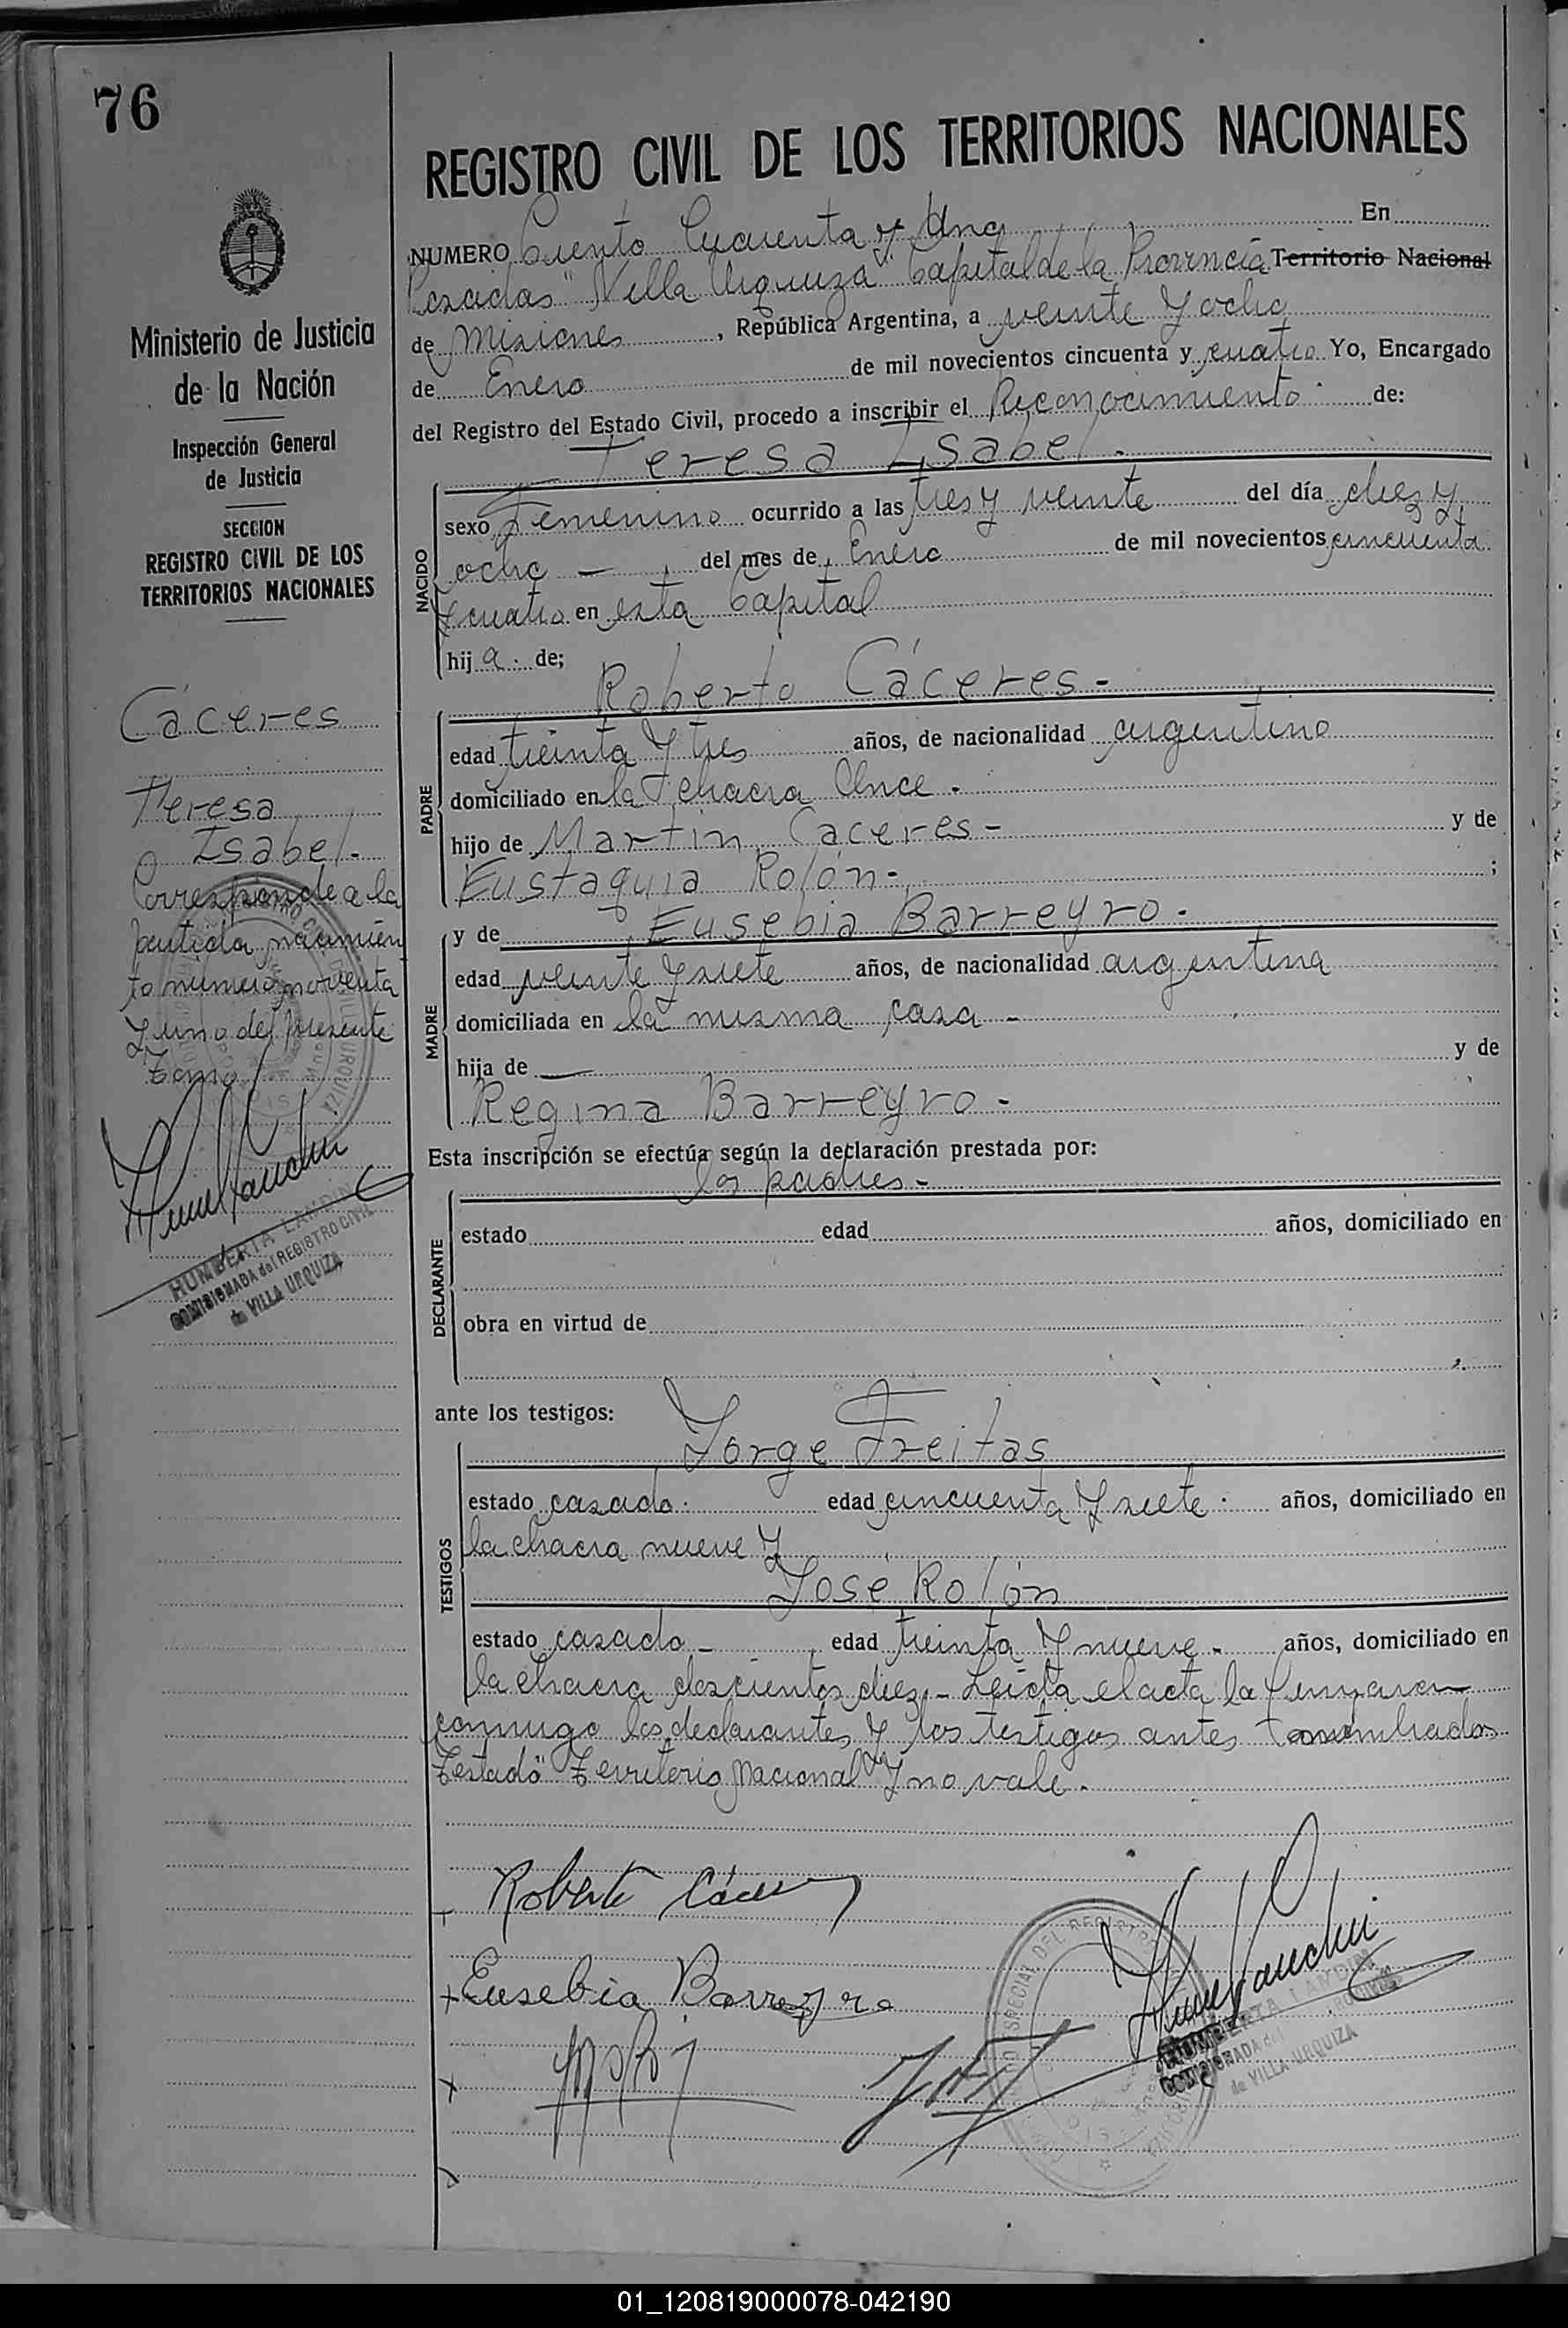 76
REGISTRO CIVIL DE LOS TERRITORIOS NACIONALES
Ministerio de Justicia
de la Nación
Inspección General
de Justicia
SECCION
REGISTRO CIVIL DE LOS
TERRITORIOS NACIONALES
Cáceres
Teresa
Isabel.
Corresponde a la
partida nacimien
to numero noventa
y uno del presente
tomo
HUMBERTA LANDIN
COMISIONADA del REGISTRO CIVIL
de VILLA URQUIZA
NUMERO Ciento Cuarenta y Una En
Posadas "Villa Urquiza" Capital de la Provincia Territorio Nacional
de Misiones, República Argentina, a veinte y ocho
de Enero de mil novecientos cincuenta y cuatro Yo, Encargado
del Registro del Estado Civil, procedo a inscribir el Reconocimiento de:
Teresa Isabel.
NACIDO
sexo Femenino ocurrido a las tres y veinte del día diez y
ocho — del mes de Enero de mil novecientos cincuenta
y cuatro en esta Capital
hija. de;
Roberto Cáceres-
PADRE
edad treinta y tres años, de nacionalidad argentino
domiciliado en la chacra Once.
hijo de Martin Caceres- y de
Eustaquia Rolón- ;
y de Eusebia Barreyro.
MADRE
edad veinte y siete años, de nacionalidad argentina
domiciliada en la misma casa -
hija de — y de
Regina Barreyro-
Esta inscripción se efectúa según la declaración prestada por:
los padres-
DECLARANTE
estado edad años, domiciliado en
obra en virtud de
ante los testigos:
Jorge Freitas
TESTIGOS
estado casado. edad cincuenta y siete. años, domiciliado en
la chacra nueve y
José Rolón
estado casado - edad treinta y nueve- años, domiciliado en
la chacra doscientos diez- Leida el acta la firmaron
conmigo los declarantes y los testigos antes nombrados
Testado "Territorio Nacional" y no vale.
Roberto Cáceres
x Eusebia Barreyro
x
HUMBERTA LANDIN
COMISIONADA del
de VILLA URQUIZA
01_120819000078-042190